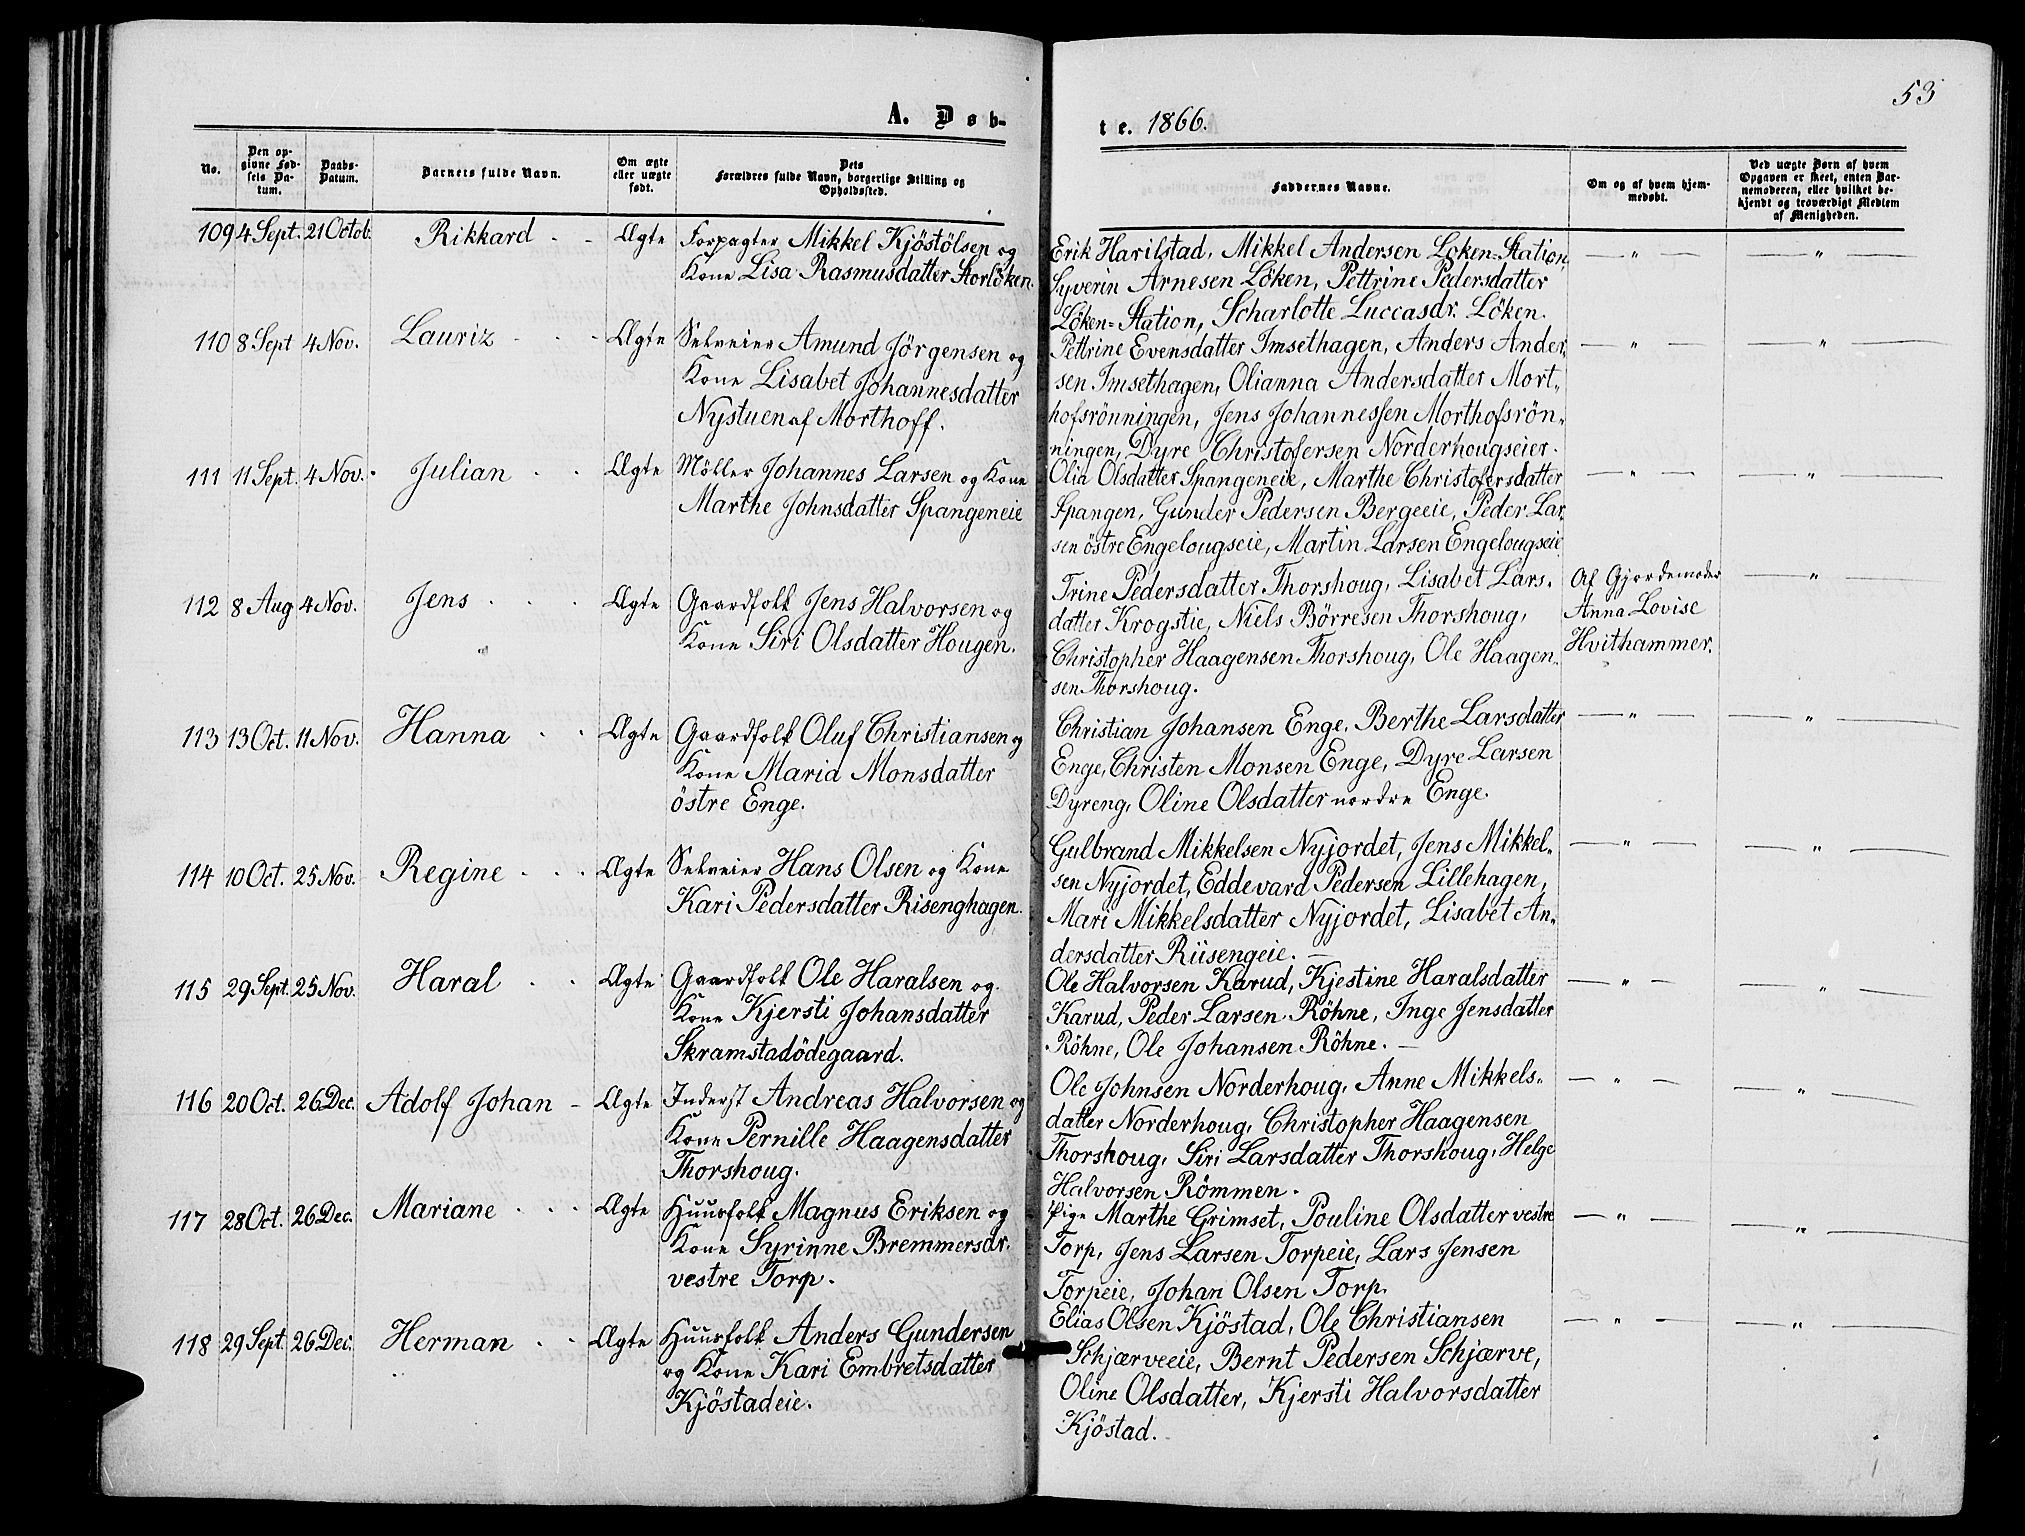 53
A. Døb-
te. 1866.
No.
Den op-
givne Fød-
sels Da-
tum.
Daabs-
Datum.
Barnets fulde Navn.
Om ægte
eller uægte
født.
Dets
Forældres fulde Navn, borgerlige Stilling og
Opholdssted.
Faddernes Navne.
Om og af hvem hjem-
medøbt.
Ved uægte Børn af hvem
Opgaven er skeet, enten Bar-
nemoderen, eller hvilket be-
kjendt og troværdigt Medlem
af Menigheden.
109 4 Sept. 21 Octob. Rikkard - - Ægte Forpagter Mikkel Kjöstölsen og
Kone Lisa Rasmusdatter Storlöken.
Erik Harilstad, Mikkel Andersen Loken-Station, — " — — " —
Syverin Arnesen Löken, Pettrine Pedersdatter
Löken-Station, Scharlotte Luccasdr. Löken.
110 8 Sept 4 Nov. Lauriz - - - Ægte Selveier Amund Jörgensen og
Kone Lisabet Johannesdatter
Nystuen af Morthoff.
Pettrine Evensdatter Imsethagen, Anders Ander- — " — — " —
sen Imsethagen, Olianna Andersdatter Mort-
hofsrönningen, Jens Johannessen Morthofsrön-
ningen, Dyre Christofersen Norderhougseier.
111 11 Sept. 4 Nov. Julian - - Ægte Möller Johannes Larsen og Kone
Marthe Johnsdatter Spangeneie
Olia Olsdatter Spangeneie, Marthe Christofersdatter — " — — " —
Spangen, Gunder Pedersen Bergeeie, Peder Lar-
sen östre Engelougseie, Martin Larsen Engelougseie
112 8 Aug 4 Nov. Jens - - - Ægte Gaardfolk Jens Halvorsen og
Kone Siri Olsdatter Hougen.
Trine Pedersdatter Thorshoug, Lisabet Lars- Af Gjordemoder — " —
datter Krogstie, Niels Börresen Thorshoug, Anna Lovise
Christopher Haagensen Thorshoug, Ole Haagen- Hvithammer.
sen Thorshoug.
113 13 Oct. 11 Nov. Hanna - - Ægte Gaardfolk Oluf Christiansen og
Kone Maria Monsdatter
östre Enge.
Christian Johansen Enge, Berthe Larsdatter — " — — " —
Enge, Christen Monsen Enge, Dyre Larsen
Dyreng, Oline Olsdatter nordre Enge.
114 10 Oct. 25 Nov. Regine - - - Ægte Selveier Hans Olsen og Kone
Kari Pedersdatter Risenghagen.
Gulbrand Mikkelsen Nyjordet, Jens Mikkel- — " — — " —
sen Nyjordet, Eddevard Pedersen Lillehagen,
Mari Mikkelsdatter Nyjordet, Lisabet An-
dersdatter Riisengeie. —
115 29 Sept. 25 Nov. Haral - - Ægte Gaardfolk Ole Haralsen og
Kone Kjersti Johansdatter
Skramstadödegaard.
Ole Halvorsen Karud, Kjestine Haralsdatter — " — — " —
Karud, Peder Larsen Röhne, Inge Jensdatter
Röhne, Ole Johansen Röhne. —
116 20 Oct. 26 Dec. Adolf Johan - Ægte Inderst Andreas Halvorsen og
Kone Pernille Haagensdatter
Thorshoug.
Ole Johnsen Norderhoug, Anne Mikkels- — " — — " —
datter Norderhoug, Christopher Haagensen
Thorshoug, Siri Larsdatter Thorshoug, Helge
Halvorsen Römmen.
117 28 Oct. 26 Dec. Mariane - - - Ægte Huusfolk Magnus Eriksen og
Kone Syrinne Bremmersdr.
vestre Torp.
Pige Marthe Grimset, Pouline Olsdatter vestre — " — — " —
Torp, Jens Larsen Torpeie, Lars Jensen
Torpeie, Johan Olsen Torp.
118 29 Sept. 26 Dec. Herman - - Ægte Huusfolk Anders Gundersen
og Kone Kari Embretsdatter
Kjöstadeie.
Elias Olsen Kjöstad, Ole Christiansen — " — — " —
Schjærveeie, Bernt Pedersen Schjærve,
Oline Olsdatter, Kjersti Halvorsdatter
Kjöstad.